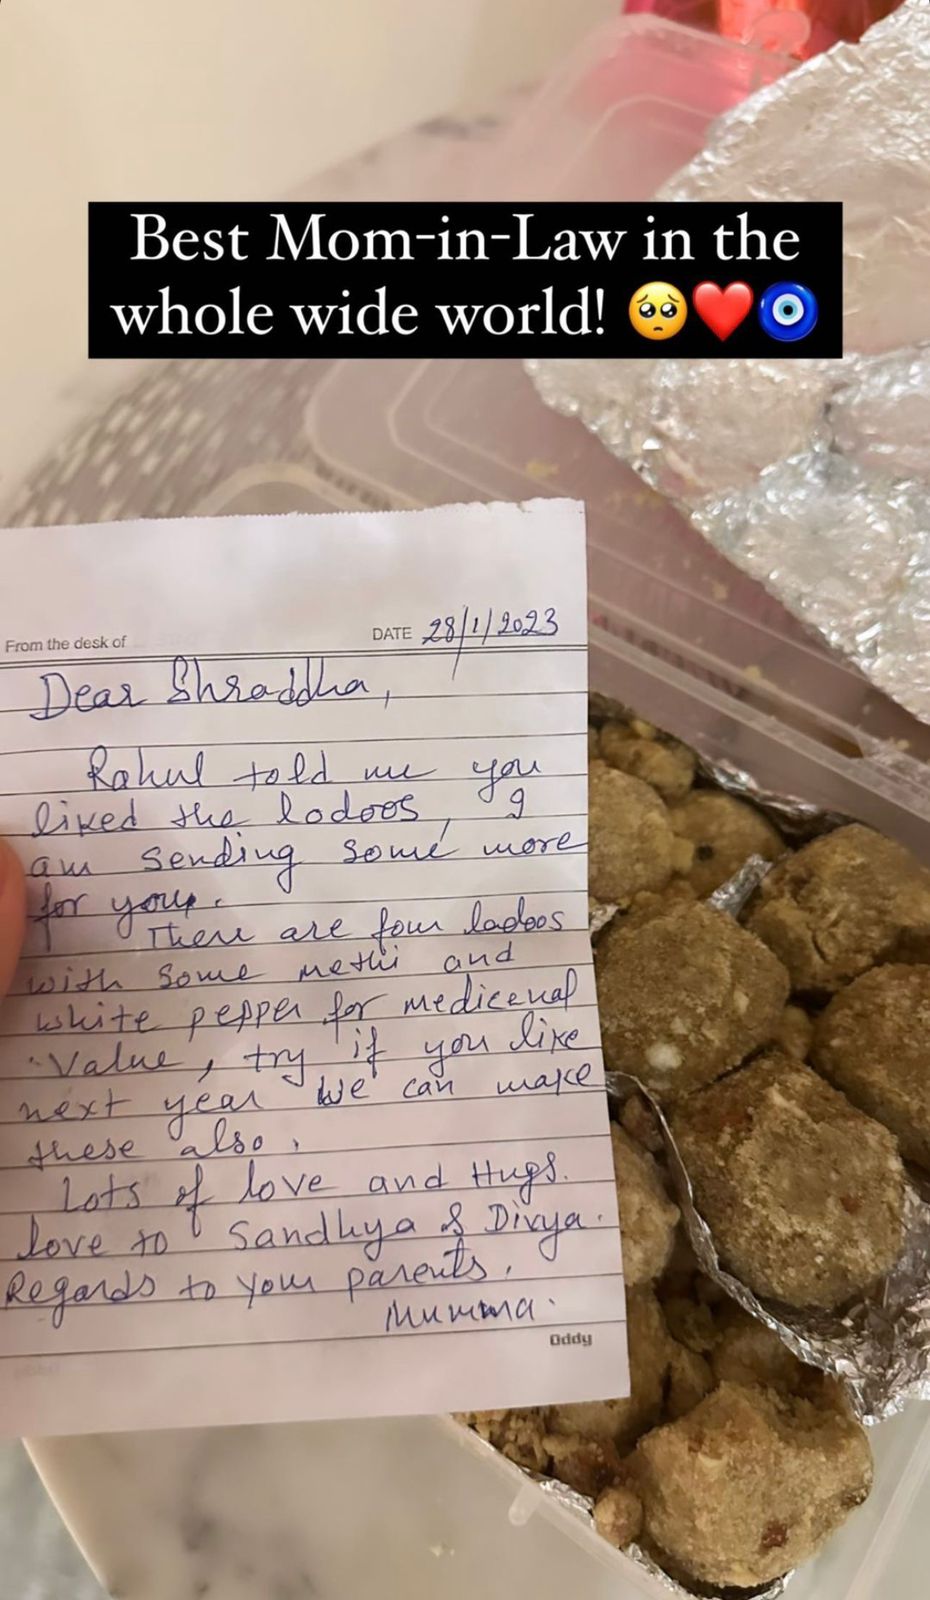 Best Mom-in-Law in the
whole wide world! 🥺❤️🧿
From the desk of
DATE 28/1/2023
Dear Shraddha,
Rahul told me you
liked the ladoos, I
am sending some more
for you.
There are four ladoos
with some methi and
white pepper for medicenal
value, try if you like
next year we can make
these also.
Lots of love and Hugs.
love to Sandhya & Divya.
Regards to your parents.
Mumma.
Oddy